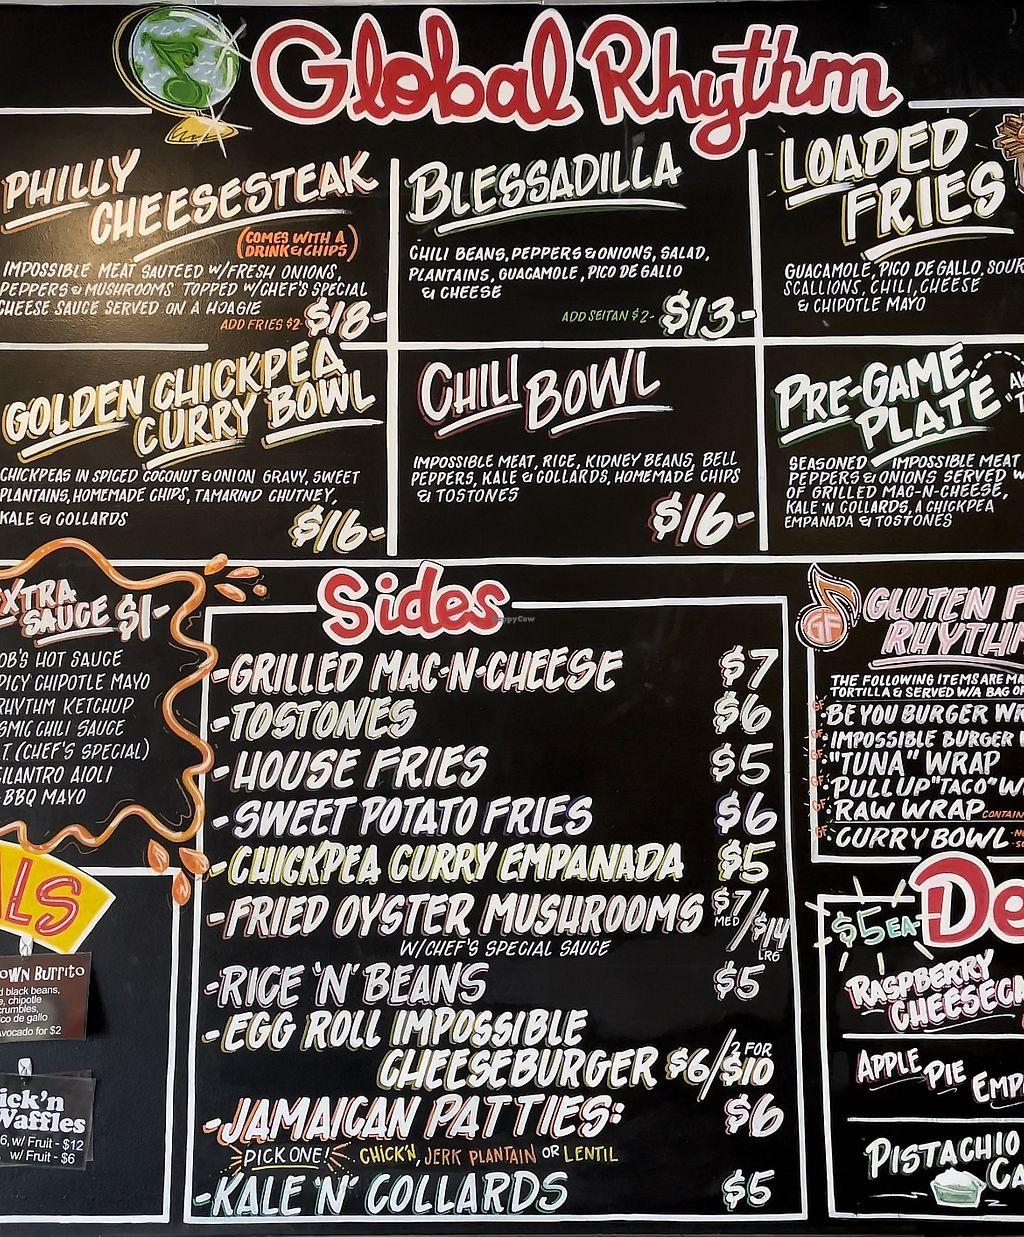 Global Rhythm
PHILLY
CHEESESTEAK
(COMES WITH A
DRINK & CHIPS)
IMPOSSIBLE MEAT SAUTEED W/FRESH ONIONS,
PEPPERS & MUSHROOMS TOPPED W/CHEF'S SPECIAL
CHEESE SAUCE SERVED ON A HOAGIE
ADD FRIES $2- $18-
BLESSADILLA
CHILI BEANS, PEPPERS & ONIONS, SALAD,
PLANTAINS, GUACAMOLE, PICO DE GALLO
& CHEESE
ADD SEITAN $2- $13-
LOADED
FRIES
GUACAMOLE, PICO DE GALLO, SOUR
SCALLIONS, CHILI, CHEESE
& CHIPOTLE MAYO
GOLDEN CHICKPEA
CURRY BOWL
CHICKPEAS IN SPICED COCONUT & ONION GRAVY, SWEET
PLANTAINS, HOMEMADE CHIPS, TAMARIND CHUTNEY,
KALE & COLLARDS
$16-
CHILI BOWL
IMPOSSIBLE MEAT, RICE, KIDNEY BEANS, BELL
PEPPERS, KALE & COLLARDS, HOMEMADE CHIPS
& TOSTONES
$16-
PRE-GAME
PLATE
SEASONED IMPOSSIBLE MEAT
PEPPERS & ONIONS SERVED W
OF GRILLED MAC-N-CHEESE,
KALE 'N COLLARDS, A CHICKPEA
EMPANADA & TOSTONES
EXTRA
SAUCE $1-
OB'S HOT SAUCE
PICY CHIPOTLE MAYO
RHYTHM KETCHUP
SMIC CHILI SAUCE
.T. (CHEF'S SPECIAL)
CILANTRO AIOLI
BBQ MAYO
ALS
OWN BURRITO
d black beans,
e, chipotle
crumbles,
co de gallo
Avocado for $2
ick'n
Waffles
6, w/ Fruit - $12
w/ Fruit - $6
Sides
-GRILLED MAC-N-CHEESE $7
-TOSTONES $6
-HOUSE FRIES $5
-SWEET POTATO FRIES $6
-CHICKPEA CURRY EMPANADA $5
-FRIED OYSTER MUSHROOMS $7 MED/$14 LRG
W/CHEF'S SPECIAL SAUCE
-RICE 'N' BEANS $5
-EGG ROLL IMPOSSIBLE
CHEESEBURGER $6/2 FOR $10
-JAMAICAN PATTIES: $6
PICK ONE! CHICK'N, JERK PLANTAIN OR LENTIL
-KALE 'N' COLLARDS $5
GF GLUTEN F
RHYTHM
THE FOLLOWING ITEMS ARE MA
TORTILLA & SERVED W/A BAG O
GF BE YOU BURGER WR
GF IMPOSSIBLE BURGER
GF "TUNA" WRAP
GF PULL UP "TACO" W
GF RAW WRAP CONTAIN
GF CURRY BOWL
De
$5 EA-
RASPBERRY
CHEESECA
APPLE PIE EMP
PISTACHIO
CA
HappyCow